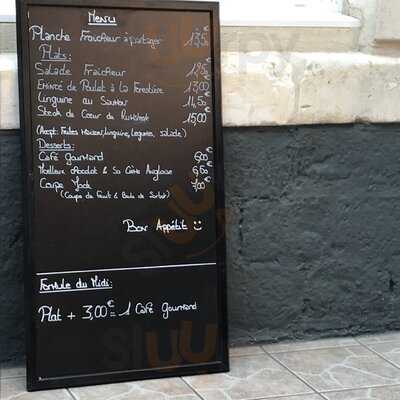 Menu
Planche Fraîcheur à partager 13,5€
Plats:
Salade Fraîcheur
Emincé de Poulet à la Forestière 13,00
Linguine au Saumon 14,50
Steak de Coeur de Rumsteak 15,00
(Accpt: Frites Maison, Linguine, Legumes, Salade)
Desserts:
Café Gourmand
Moelleux chocolat & Sa Crème Anglaise
Coupe Jack
(Coupe de Fruit & Boule de Sorbet)
Bon Appétit
Formule du Midi:
Plat + 3,00€ = 1 Café Gourmand